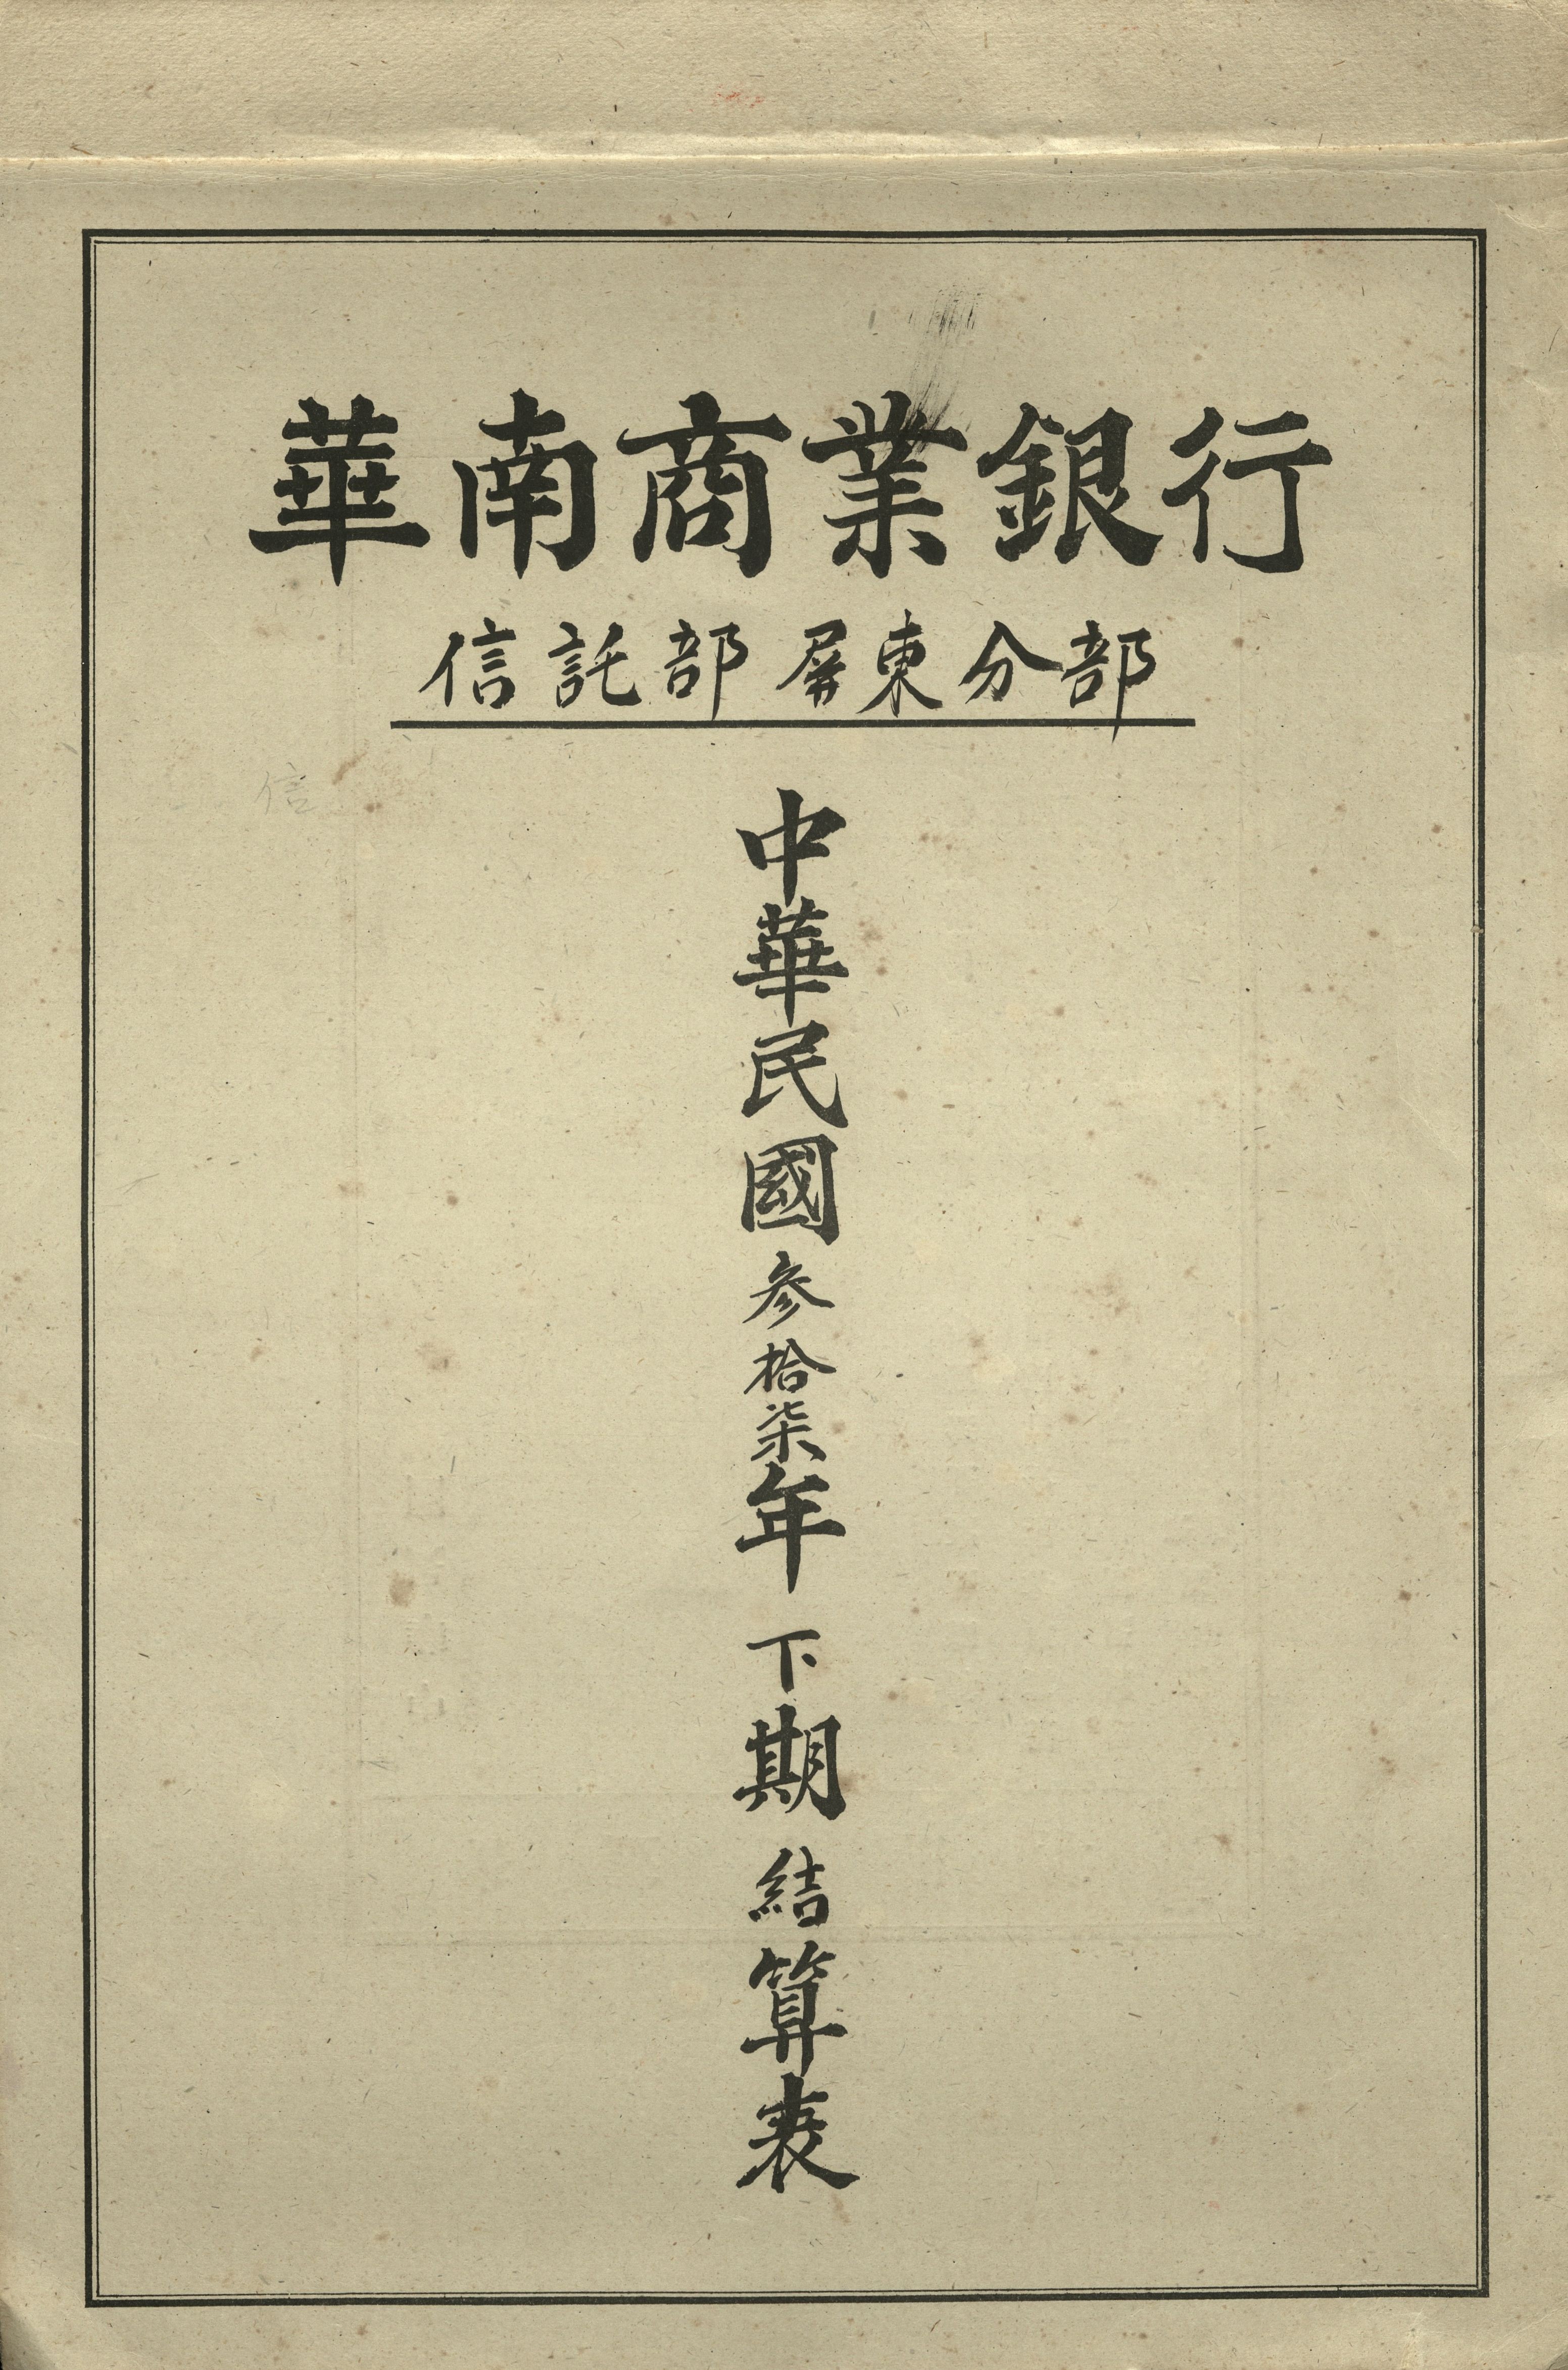 華南商業銀行
信託部屏東分部
信
中華民國参拾柒年下期結算表